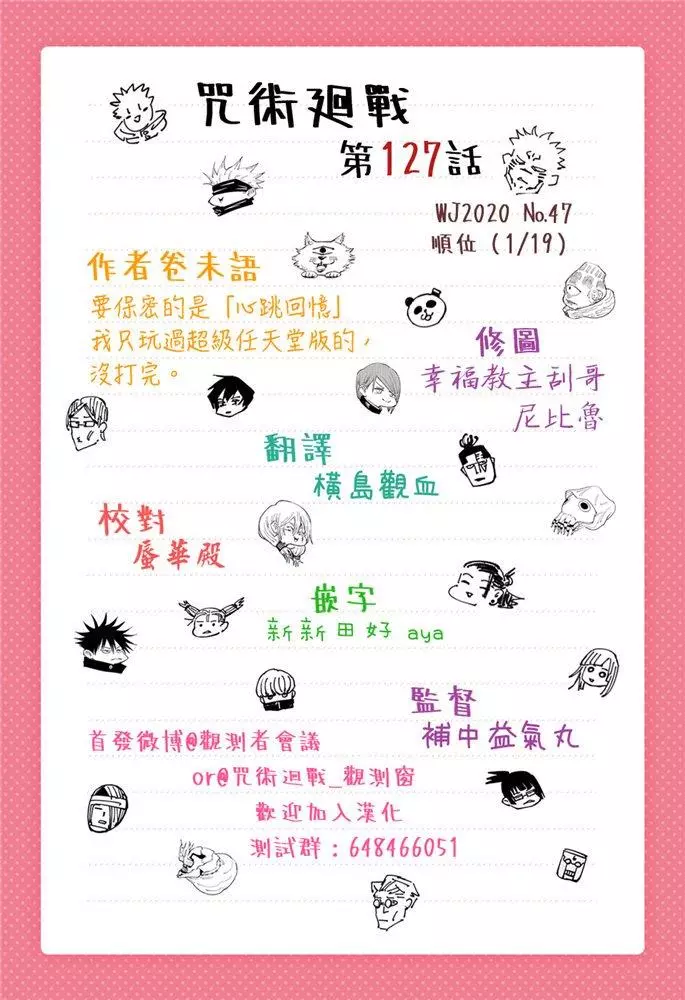 咒術廻戰
第127話
WJ2020 No.47
順位 (1/19)
作者卷末語
要保密的是「心跳回憶」
我只玩過超級任天堂版的，
沒打完。
修圖
幸福教主刮哥
尼比魯
翻譯
橫島觀血
校對
蜃華殿
嵌字
新新田好 aya
監督
補中益氣丸
首發微博@觀測者會議
or@咒術迴戰_觀測窗
歡迎加入漢化
測試群：648466051